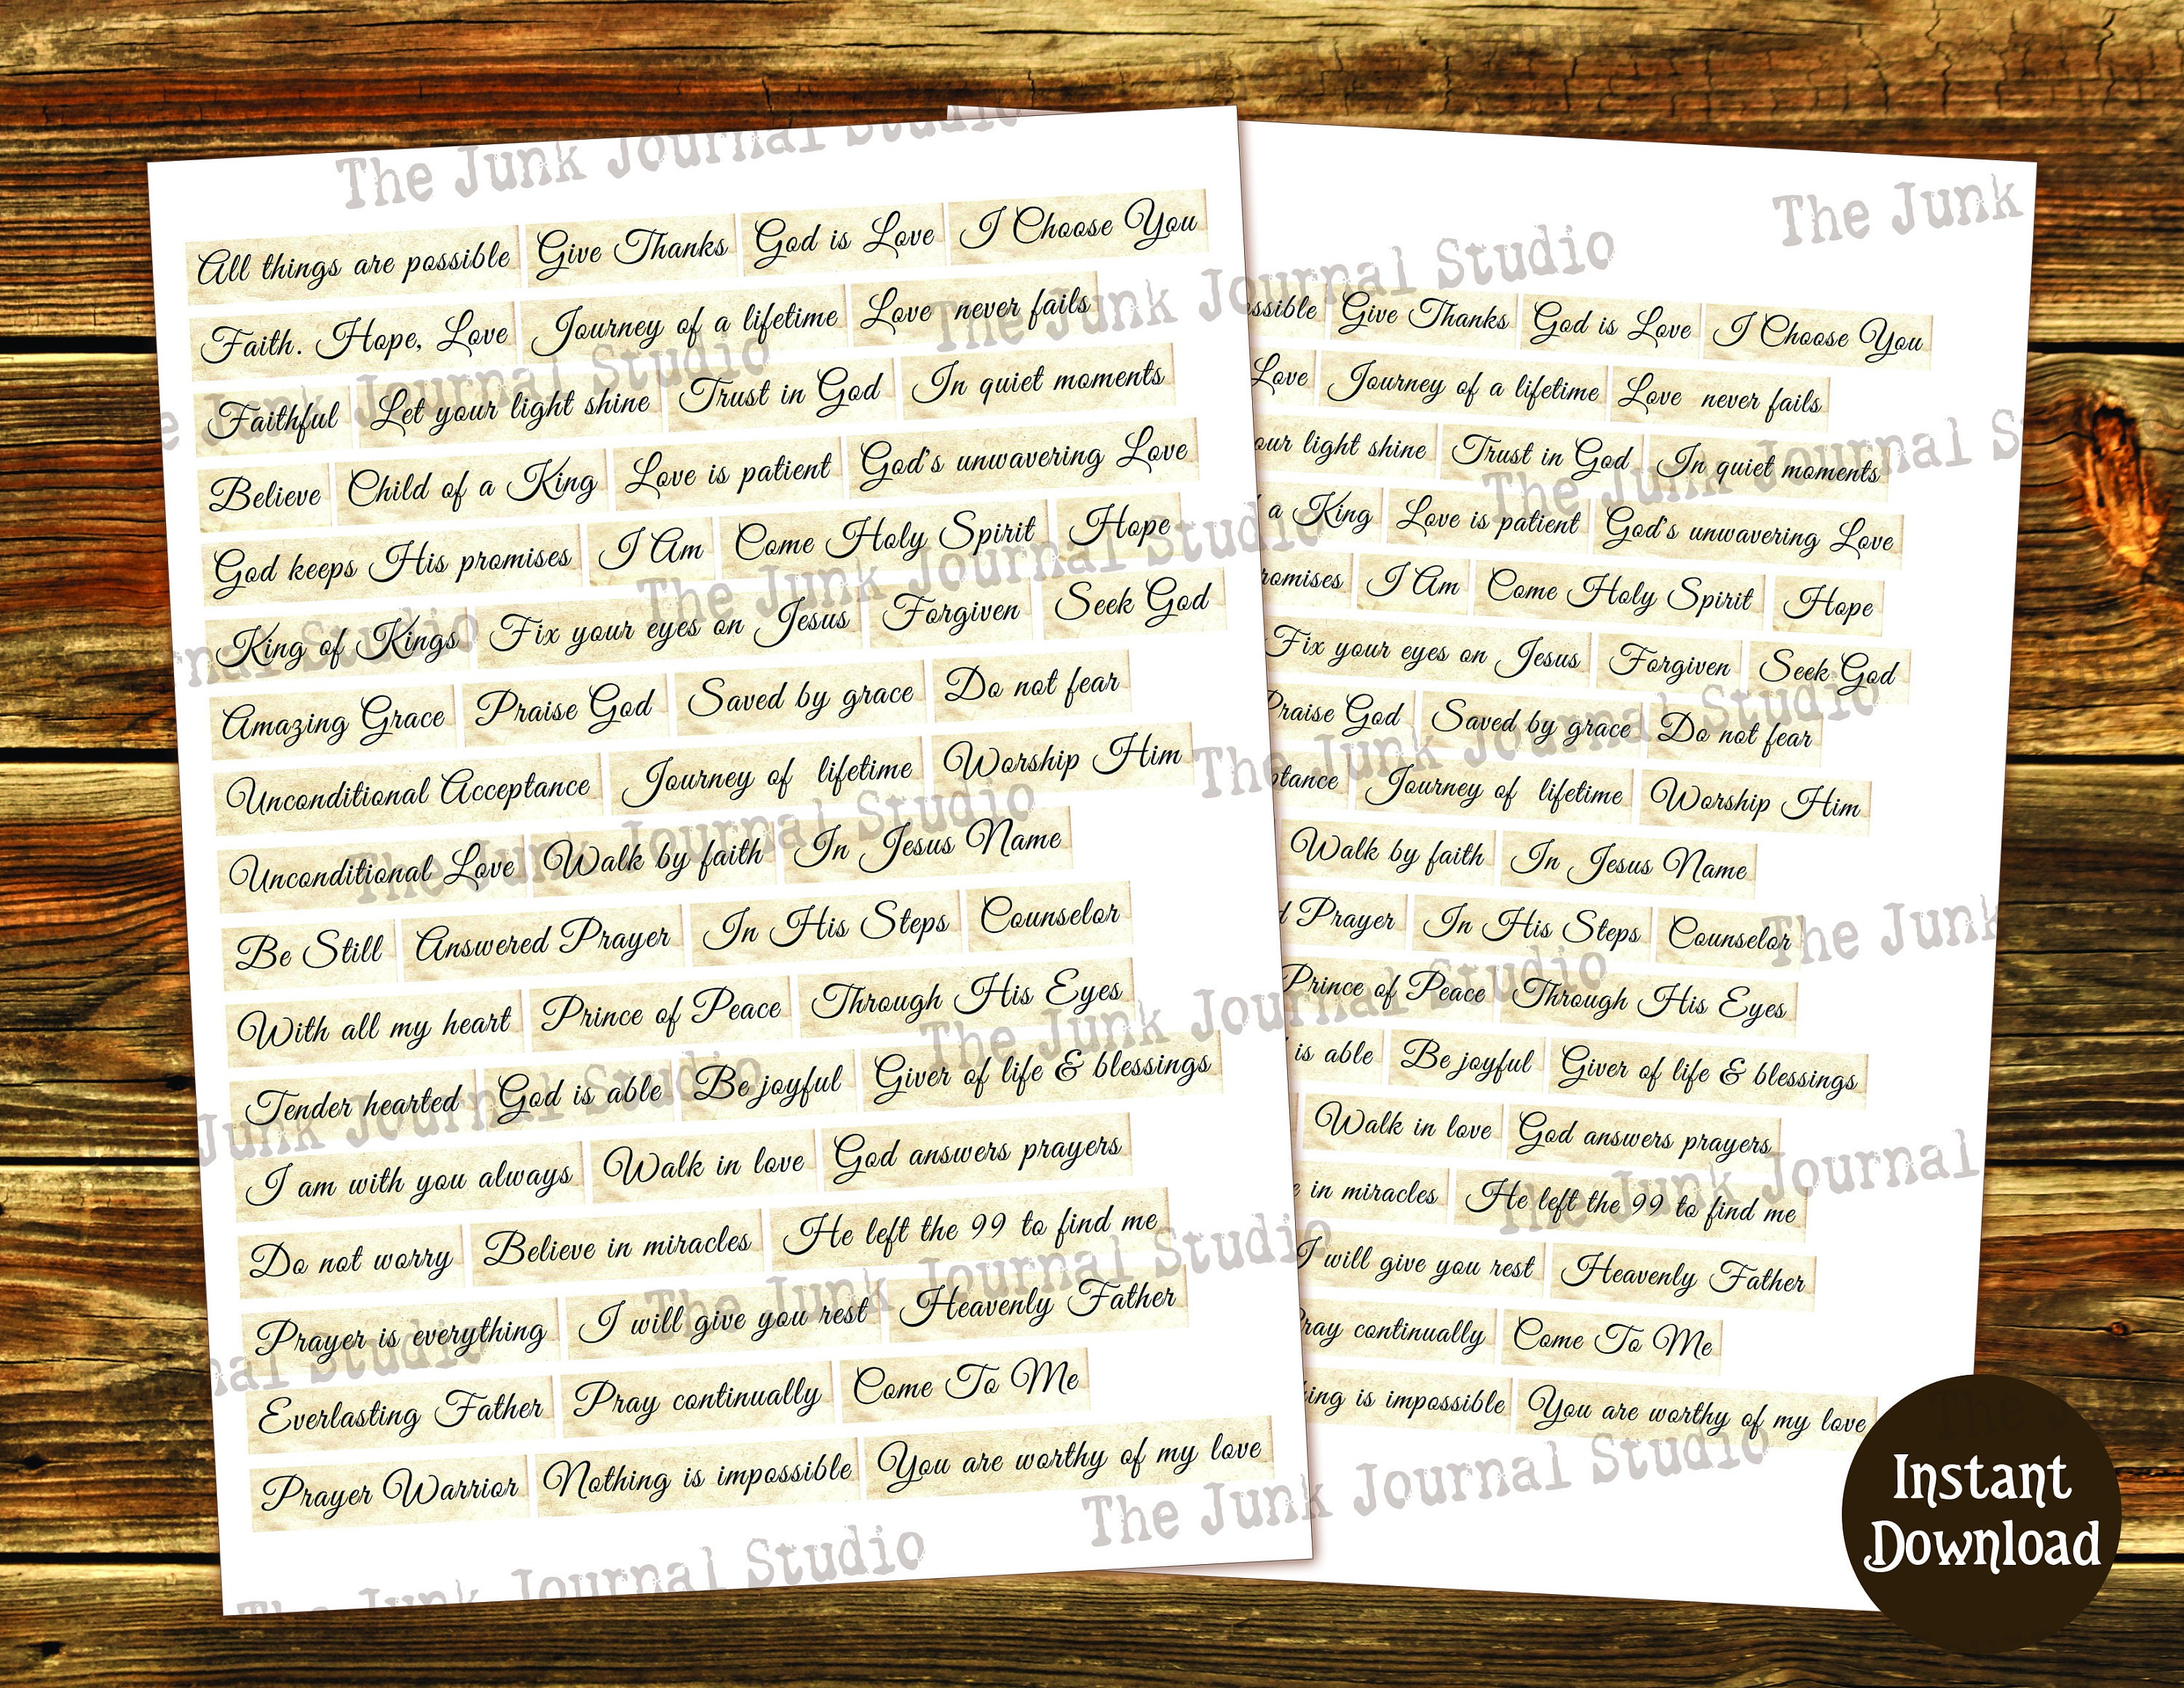 The Junk Journal Studio
All things are possible Give Thanks God is Love I Choose You
Faith. Hope, Love Journey of a lifetime Love never fails
Faithful Let your light shine Trust in God In quiet moments
Believe Child of a King Love is patient God's unwavering Love
God keeps His promises I Am Come Holy Spirit Hope
King of Kings Fix your eyes on Jesus Forgiven Seek God
Amazing Grace Praise God Saved by grace Do not fear
Unconditional Acceptance Journey of lifetime Worship Him
Unconditional Love Walk by faith In Jesus Name
Be Still Answered Prayer In His Steps Counselor
With all my heart Prince of Peace Through His Eyes
Tender hearted God is able Be joyful Giver of life & blessings
I am with you always Walk in love God answers prayers
Do not worry Believe in miracles He left the 99 to find me
Prayer is everything I will give you rest Heavenly Father
Everlasting Father Pray continually Come To Me
Prayer Warrior Nothing is impossible You are worthy of my love
The Junk Journal Studio
The Junk
The Junk Journal Studio
ssible Give Thanks God is Love I Choose You
Love Journey of a lifetime Love never fails
our light shine Trust in God In quiet moments
a King Love is patient God's unwavering Love
romises I Am Come Holy Spirit Hope
Fix your eyes on Jesus Forgiven Seek God
Praise God Saved by grace Do not fear
ptance Journey of lifetime Worship Him
Walk by faith In Jesus Name
d Prayer In His Steps Counselor
Prince of Peace Through His Eyes
is able Be joyful Giver of life & blessings
Walk in love God answers prayers
e in miracles He left the 99 to find me
I will give you rest Heavenly Father
Pray continually Come To Me
hing is impossible You are worthy of my love
The Junk Journal Studio
Instant
Download